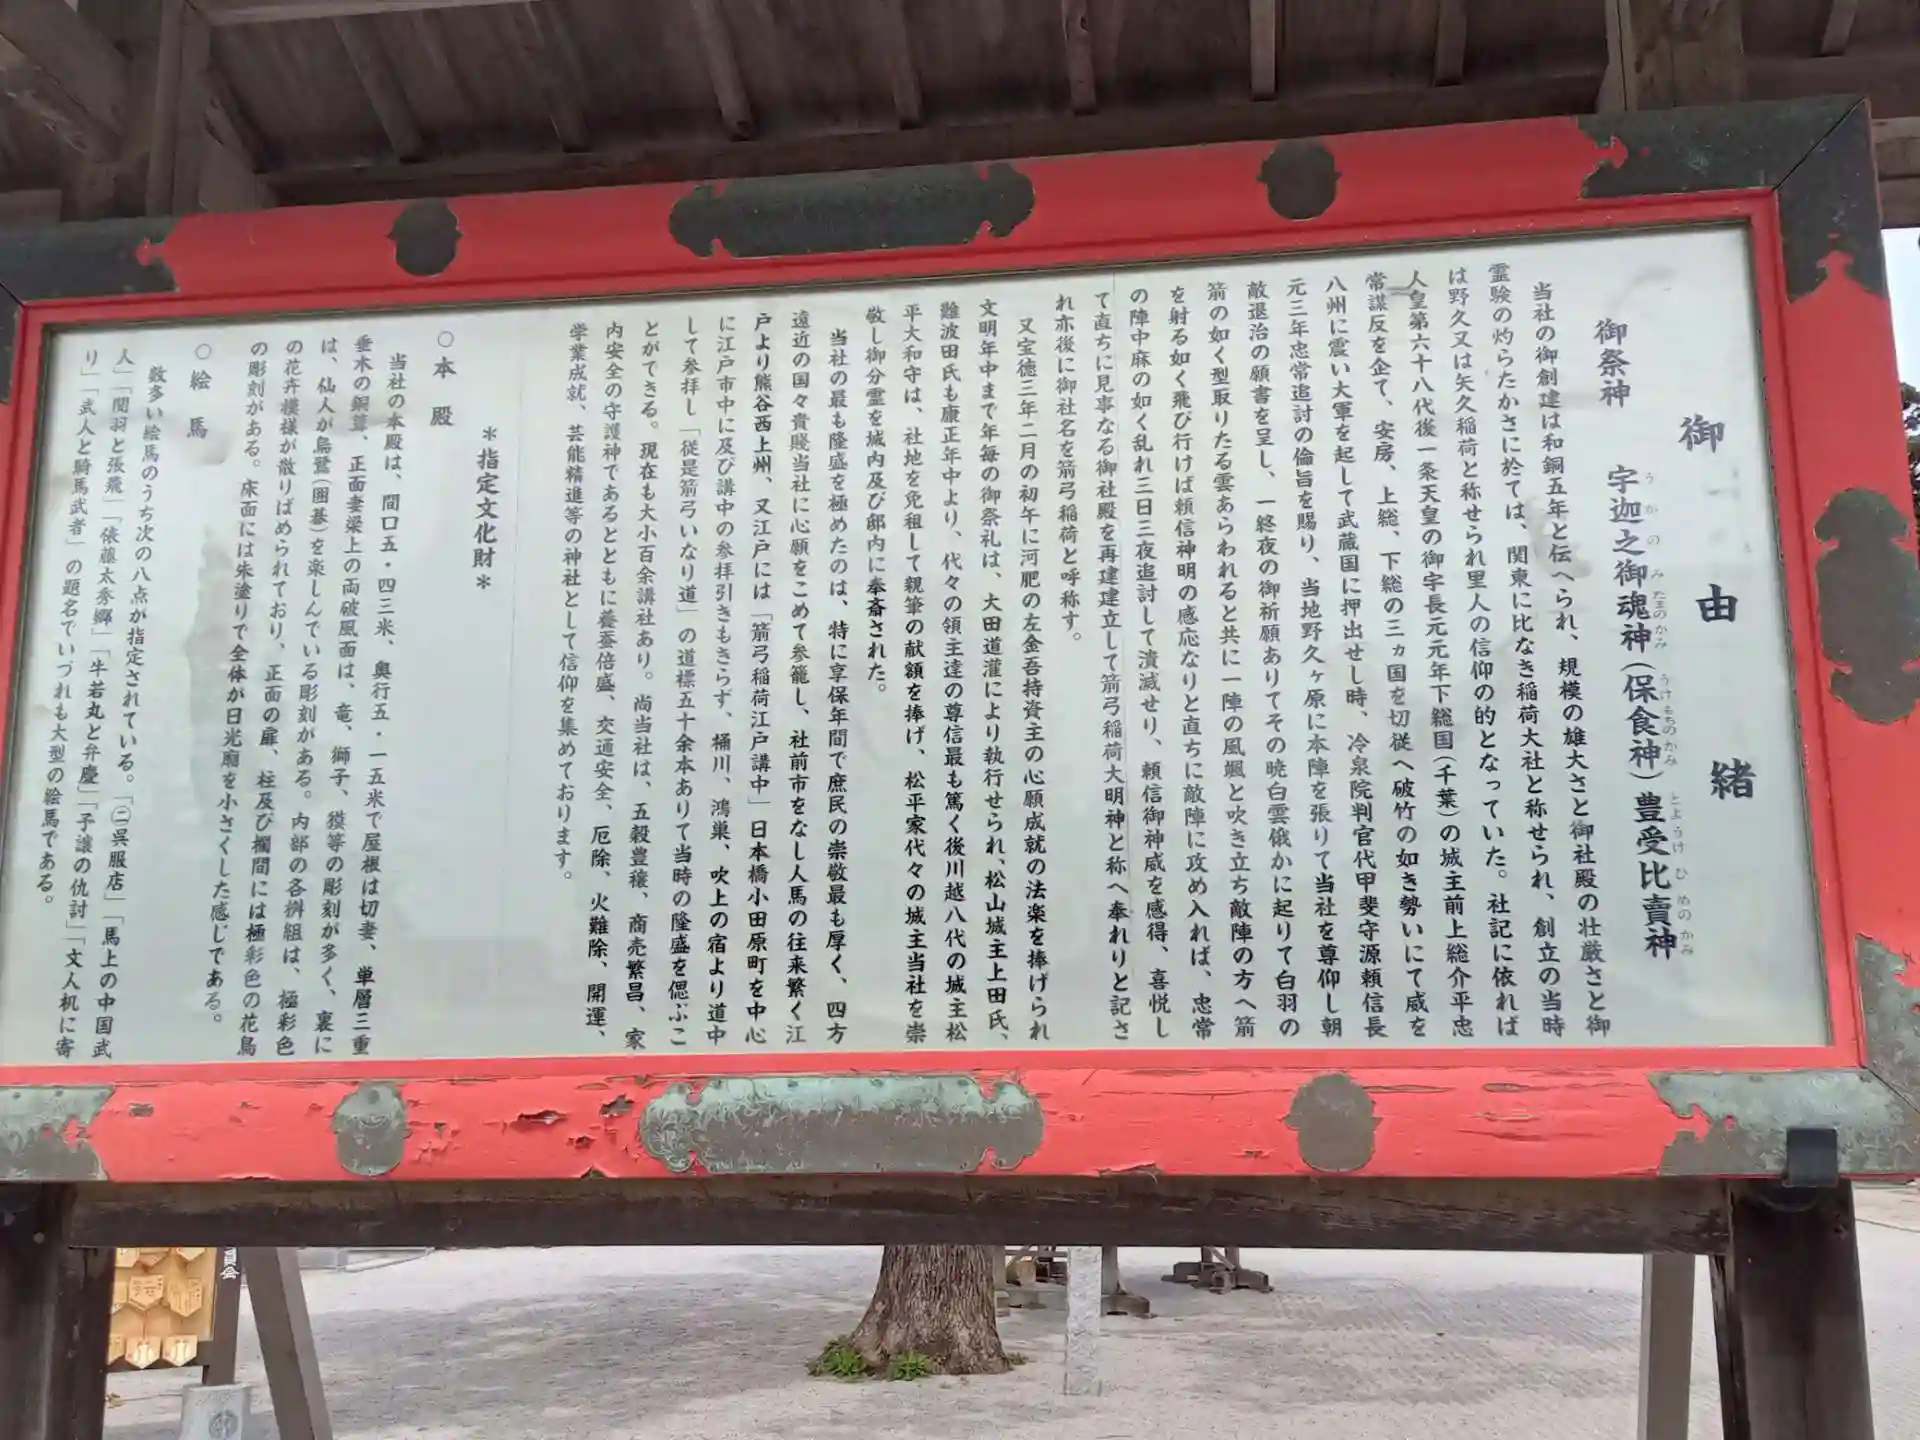 御由緒
御祭神　宇迦之御魂神（保食神）豊受比賣神
うかのみたまのかみ　うけもちのかみ　とようけひめのかみ
当社の御創建は和銅五年と伝へられ、規模の雄大さと御社殿の壮厳さと御
霊験の灼らたかさに於ては、関東に比なき稲荷大社と称せられ、創立の当時
は野久又は矢久稲荷と称せられ里人の信仰の的となっていた。社記に依れば
人皇第六十八代後一条天皇の御宇長元元年下総国（千葉）の城主前上総介平忠
常謀反を企て、安房、上総、下総の三ヵ国を切従へ破竹の如き勢いにて威を
八州に震い大軍を起して武蔵国に押出せし時、冷泉院判官代甲斐守源頼信長
元三年忠常追討の倫旨を賜り、当地野久ヶ原に本陣を張りて当社を尊仰し朝
敵退治の願書を呈し、一終夜の御祈願ありてその暁白雲俄かに起りて白羽の
箭の如く型取りたる雲あらわれると共に一陣の風颯と吹き立ち敵陣の方へ箭
を射る如く飛び行けば頼信神明の感応なりと直ちに敵陣に攻め入れば、忠常
の陣中麻の如く乱れ三日三夜追討して潰滅せり、頼信御神威を感得、喜悦し
て直ちに見事なる御社殿を再建建立して箭弓稲荷大明神と称へ奉れりと記さ
れ亦後に御社名を箭弓稲荷と呼称す。
又宝徳三年二月の初午に河肥の左金吾持資主の心願成就の法楽を捧げられ
文明年中まで年毎の御祭礼は、大田道灌により執行せられ、松山城主上田氏、
難波田氏も康正年中より、代々の領主達の尊信最も篤く後川越八代の城主松
平大和守は、社地を免租して親筆の献額を捧げ、松平家代々の城主当社を崇
敬し御分霊を城内及び邸内に奉斎された。
当社の最も隆盛を極めたのは、特に享保年間で庶民の崇敬最も厚く、四方
遠近の国々貴賤当社に心願をこめて参籠し、社前市をなし人馬の往来繁く江
戸より熊谷西上州、又江戸には「箭弓稲荷江戸講中」日本橋小田原町を中心
に江戸市中に及び講中の参拝引きもきらず、桶川、鴻巣、吹上の宿より道中
して参拝し「従是箭弓いなり道」の道標五十余本ありて当時の隆盛を偲ぶこ
とができる。現在も大小百余講社あり。尚当社は、五穀豊穣、商売繁昌、家
内安全の守護神であるとともに養蚕倍盛、交通安全、厄除、火難除、開運、
学業成就、芸能精進等の神社として信仰を集めております。
＊指定文化財＊
○本殿
当社の本殿は、間口五・四三米、奥行五・一五米で屋根は切妻、単層三重
垂木の銅葺、正面妻梁上の両破風面は、竜、獅子、獏等の彫刻が多く、裏に
は、仙人が烏鷺（囲碁）を楽しんでいる彫刻がある。内部の各桝組は、極彩色
の花卉模様が散りばめられており、正面の扉、柱及び欄間には極彩色の花鳥
の彫刻がある。床面には朱塗りで全体が日光廟を小さくした感じである。
○絵馬
数多い絵馬のうち次の八点が指定されている。「㊁呉服店」「馬上の中国武
人」「関羽と張飛」「俵藤太秀郷」「牛若丸と弁慶」「予譲の仇討」「文人机に寄
り」「武人と騎馬武者」の題名でいづれも大型の絵馬である。